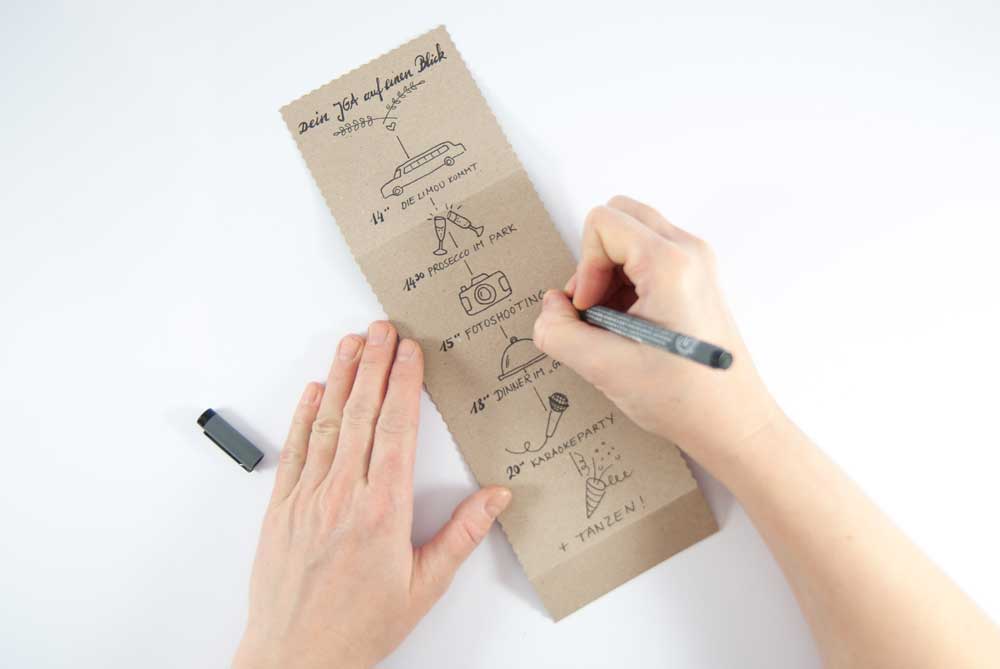 Dein JGA auf einen Blick
14°° DIE LIMOU KOMMT
14³⁰ PROSECCO IM PARK
15°° FOTOSHOOTING
18°° DINNER IM „G
20°° KARAOKEPARTY
+ TANZEN!